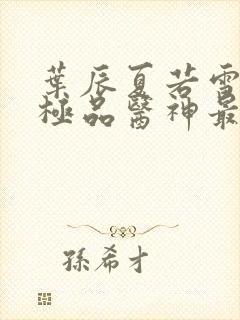 葉辰夏若雪
極品醫神最
孫希才